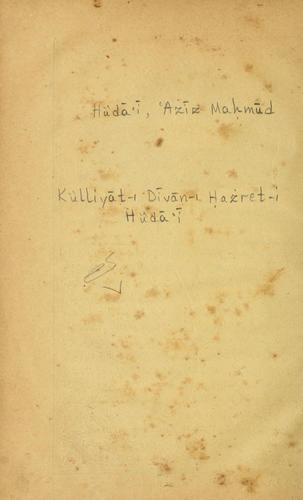 Hüdā'ī, 'Azīz Maḥmūd
Külliyāt-ı Dīvān-ı Ḥażret-i
Hüdā'ī